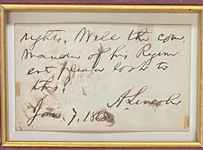 rights. Will the com
mander of his Regim
ent please look to
this?
A. Lincoln
Jan. 7, 186